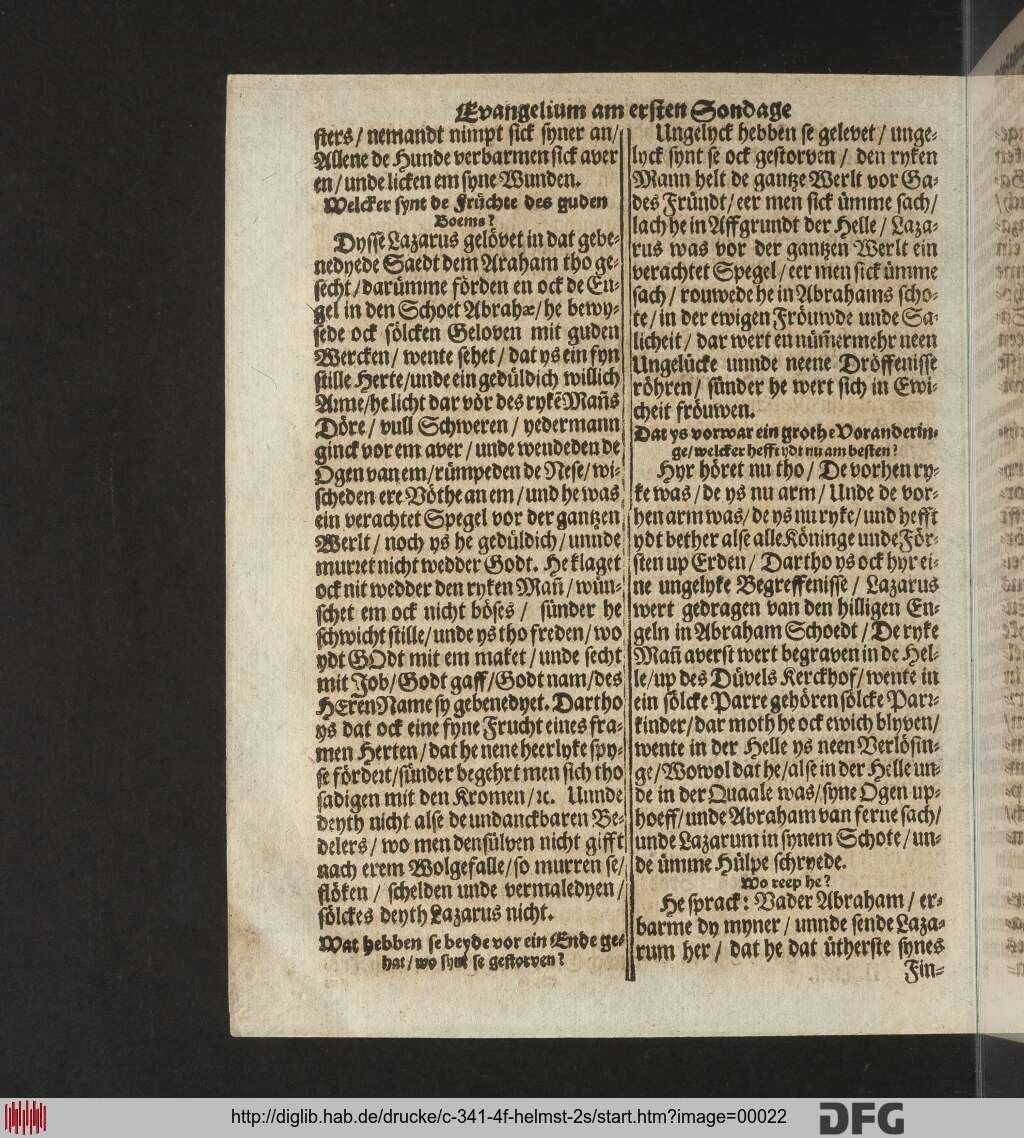 Evangelium am ersten Sondage
sters / nemandt nimpt sick syner an /
Allene de Hunde verbarmen sick aver
en / unde licken em syne Wunden.
Welcker synt de Früchte des guden
Boems?
Dysse Lazarus gelövet in dat gebe-
nedyede Saedt dem Araham tho ge-
secht / darümme förden en ock de En-
gel in den Schoet Abrahæ / he bewy-
sede ock sölcken Geloven mit guden
Wercken / wente sehet / dat ys ein fyn
stille Herte / unde ein gedüldich willich
Arme / he licht dar vör des rykē Mañs
Döre / vull Schweren / yedermann
ginck vor em aver / unde wendeden de
Ogen van em / rümpeden de Nese / wi-
scheden ere Vöthe an em / und he was
ein verachtet Spegel vor der gantzen
Werlt / noch ys he gedüldich / unnde
murret nicht wedder Godt. He klaget
ock nit wedder den ryken Mañ / wün-
schet em ock nicht böses / sünder he
schwicht stille / unde ys tho freden / wo
ydt GOdt mit em maket / unde secht
mit Job / Godt gaff / Godt nam / des
HEren Name sy gebenedyet. Dartho
ys dat ock eine fyne Frucht eines fra-
men Herten / dat he nene heerlyke spy-
se fördert / sünder begehrt men sich tho
sadigen mit den Kromen / ꝛc. Unnde
deyth nicht alse de undanckbaren Be-
delers / wo men densülven nicht gifft
nach erem Wolgefalle / so murren se /
flöken / schelden unde vermaledyen /
sölckes deyth Lazarus nicht.
Wat hebben se beyde vor ein Ende ge-
hat / wo synt se gestorven?
Ungelyck hebben se gelevet / unge-
lyck synt se ock gestorven / den ryken
Mann helt de gantze Werlt vor Ga-
des Fründt / eer men sick ümme sach /
lach he in Affgrundt der Helle / Laza-
rus was vor der gantzen Werlt ein
verachtet Spegel / eer men sick ümme
sach / rouwede he in Abrahams scho-
te / in der ewigen Fröuwde unde Sa-
licheit / dar wert en nüm̄ermehr neen
Ungelücke unnde neene Dröffenisse
röhren / sünder he wert sich in Ewi-
cheit fröuwen.
Dat ys vorwar ein grothe Voranderin-
ge / welcker hefft ydt nu am besten?
Hyr höret nu tho / De vorhen ry-
ke was / de ys nu arm / Unde de vor-
hen arm was / de ys nu ryke / und hefft
ydt bether alse alle Köninge unde För-
sten up Erden / Dartho ys ock hyr ei-
ne ungelyke Begreffenisse / Lazarus
wert gedragen van den hilligen En-
geln in Abraham Schoedt / De ryke
Mañ averst wert begraven in de Hel-
le / up des Düvels Kerckhof / wente in
ein sölcke Parre gehören sölcke Parr-
kinder / dar moth he ock ewich blyven /
wente in der Helle ys neen Verlösin-
ge / Wowol dat he / alse in der Helle un-
de in der Quaale was / syne Ogen up-
hoeff / unde Abraham van ferne sach /
unde Lazarum in synem Schote / un-
de ümme Hülpe schryede.
Wo reep he?
He sprack: Vader Abraham / er-
barme dy myner / unnde sende Laza-
rum her / dat he dat ütherste synes
Fin-
http://diglib.hab.de/drucke/c-341-4f-helmst-2s/start.htm?image=00022
DFG